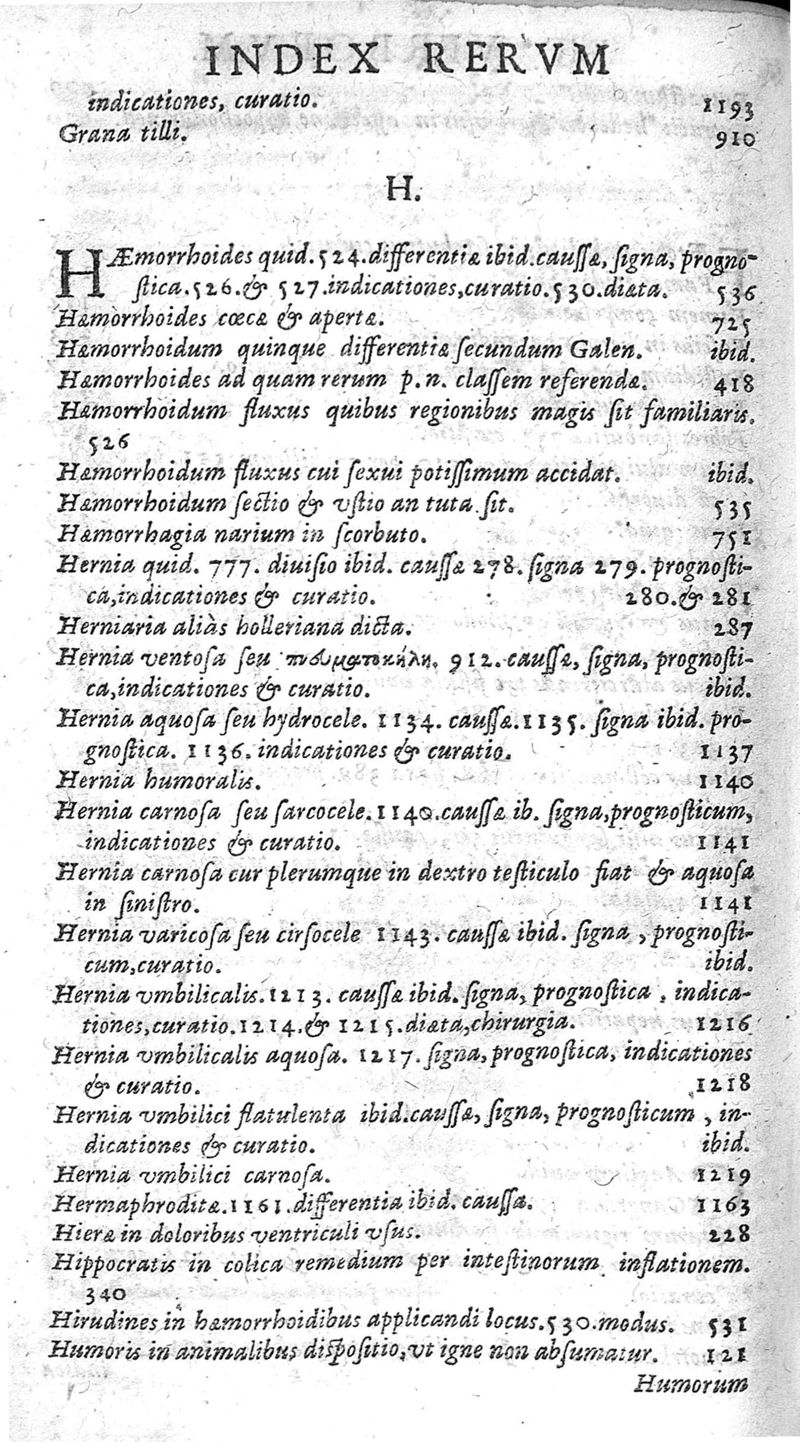 INDEX RERVM
indicationes, curatio. 1193
Grana tilli. 910
H.
HÆmorrhoides quid. 524. differentiæ ibid. caussæ, signa, progno-
stica. 526. & 527. indicationes, curatio. 530. diæta. 536
Hæmorrhoides cœcæ & apertæ. 725
Hæmorrhoidum quinque differentiæ secundum Galen. ibid.
Hæmorrhoides ad quam rerum p. n. classem referendæ. 418
Hæmorrhoidum fluxus quibus regionibus magis sit familiaris.
526
Hæmorrhoidum fluxus cui sexui potissimum accidat. ibid.
Hæmorrhoidum sectio & vstio an tuta sit. 535
Hæmorrhagia narium in scorbuto. 751
Hernia quid. 777. diuisio ibid. caussæ 278. signa 279. prognosti-
ca, indicationes & curatio. 280. & 281
Herniaria aliàs holleriana dicta. 287
Hernia ventosa seu πνευματοκήλη. 912. caussæ, signa, prognosti-
ca, indicationes & curatio. ibid.
Hernia aquosa seu hydrocele. 1134. caussæ. 1135. signa ibid. pro-
gnostica. 1136. indicationes & curatio. 1137
Hernia humoralis. 1140
Hernia carnosa seu sarcocele. 1140. caussæ ib. signa, prognosticum,
indicationes & curatio. 1141
Hernia carnosa cur plerumque in dextro testiculo fiat & aquosa
in sinistro. 1141
Hernia varicosa seu cirsocele 1143. caussæ ibid. signa, prognosti-
cum, curatio. ibid.
Hernia vmbilicalis. 1213. caussæ ibid. signa, prognostica, indica-
tiones, curatio. 1214. & 1215. diæta, chirurgia. 1216
Hernia vmbilicalis aquosa. 1217. signa, prognostica, indicationes
& curatio. 1218
Hernia vmbilici flatulenta ibid. caussæ, signa, prognosticum, in-
dicationes & curatio. ibid.
Hernia vmbilici carnosa. 1219
Hermaphroditæ. 1161. differentia ibid. caussæ. 1163
Hieræ in doloribus ventriculi vsus. 228
Hippocratis in colica remedium per intestinorum inflationem.
340
Hirudines in hæmorrhoidibus applicandi locus. 530. modus. 531
Humoris in animalibus dispositio, vt igne non absumatur. 121
Humorum